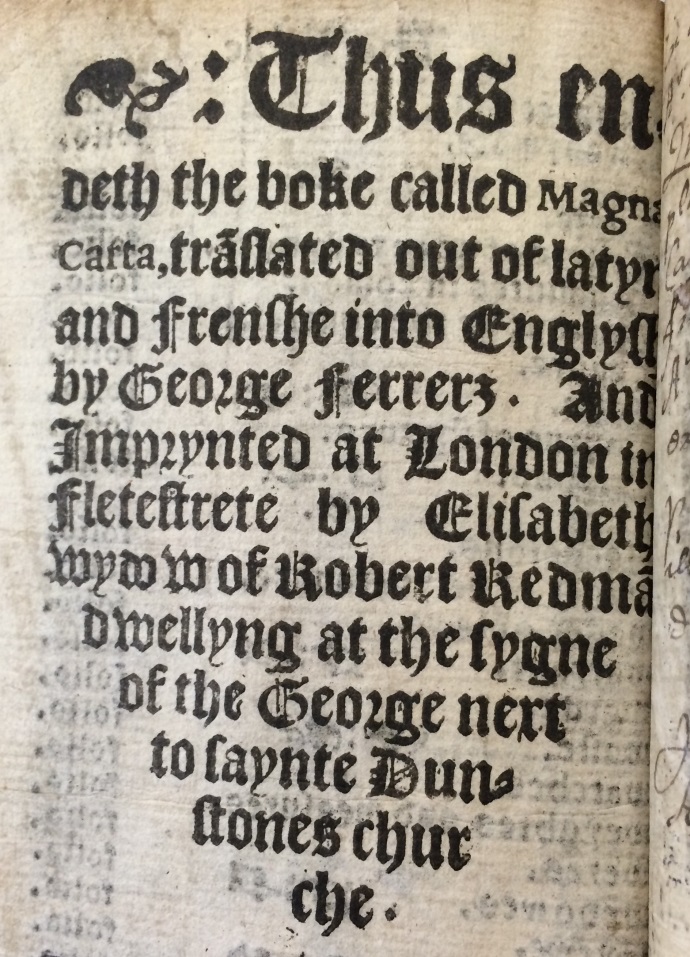 :Thus en-
deth the boke called Magna
Carta, trãſlated out of latyn
and Frenſhe into Englyſh
by George Ferrerz. And
Imprynted at London in
Fleteſtrete by Eliſabeth
wydow of Robert Redmã
dwellyng at the ſygne
of the George next
to ſaynte Dun-
ſtones chur
che.